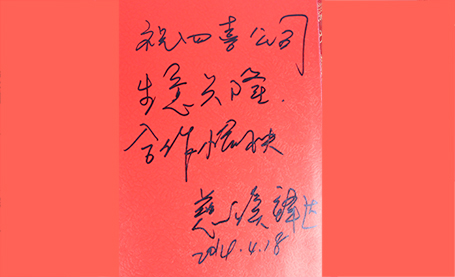 祝四喜公司
生意兴隆.
合作愉快
2014.4.18